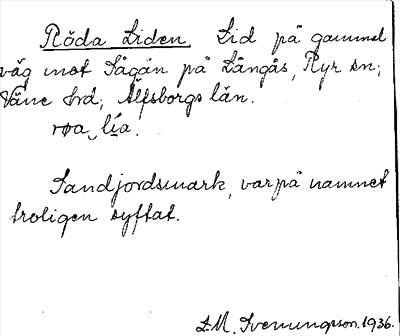 Röda Liden. Lid på gammal
väg mot Sågån på Långås, Ryr sn;
Väne hrd; Älfsborgs län.
røa lia.
Sandjordsmark, varpå namnet
troligen syftat.
L.M. Svenungsson. 1936.